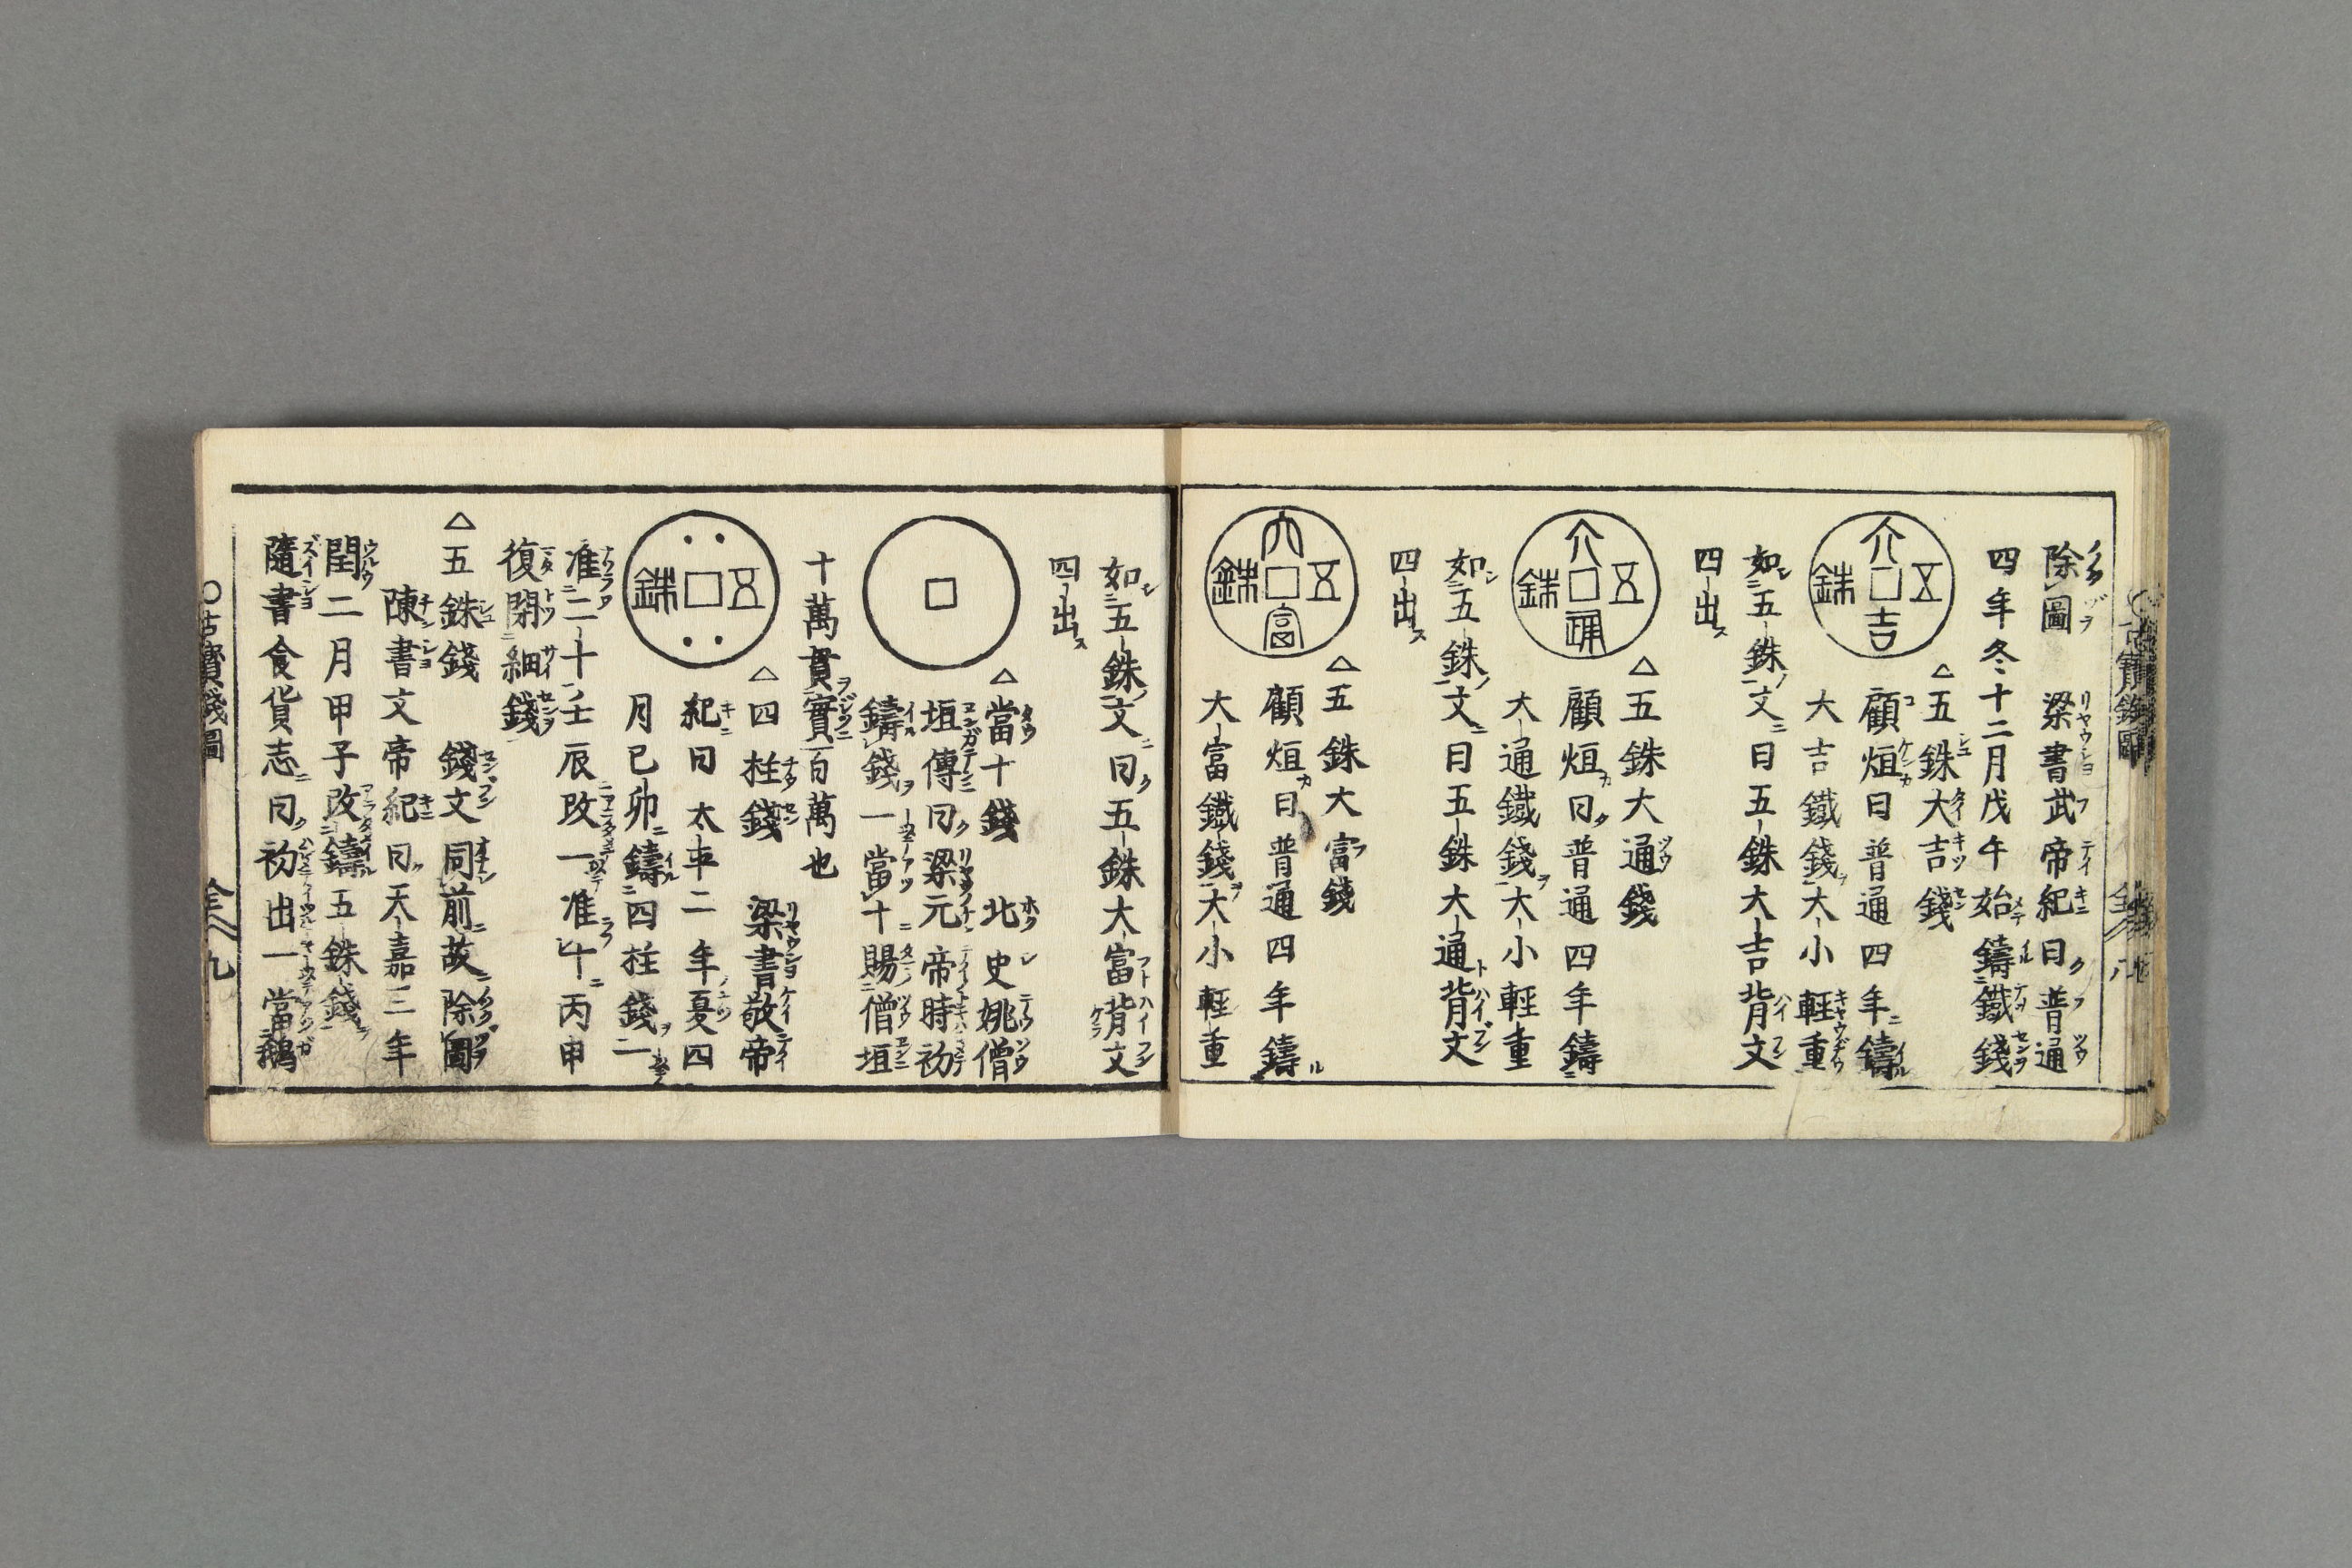 除圖　梁書武帝紀曰普通
四年冬十二月戊午始鑄鐵錢
△五銖大吉錢
五銖大吉
顧烜曰普通四年鑄
大吉鐵錢大小輕重
如五銖文曰五銖大吉背文
四出
△五銖大通錢
五銖大通
顧烜曰普通四年鑄
大通鐵錢大小輕重
如五銖文曰五銖大通背文
四出
△五銖大富錢
五銖大富
顧烜曰普通四年鑄
大富鐵錢大小輕重
如五銖文曰五銖大富背文
四出
△當十錢　北史姚僧
垣傳曰梁元帝時初
鑄錢一當十賜僧垣
十萬貫實百萬也
△四柱錢　梁書敬帝
五銖
紀曰太平二年夏四
月己卯鑄四柱錢一
准二十壬辰改一准十丙申
復閉細錢
△五銖錢　錢文同前故除圖
陳書文帝紀曰天嘉三年
閏二月甲子改鑄五銖錢
隨書食貨志曰初出一當鵝
○古寳錢圖　全　九